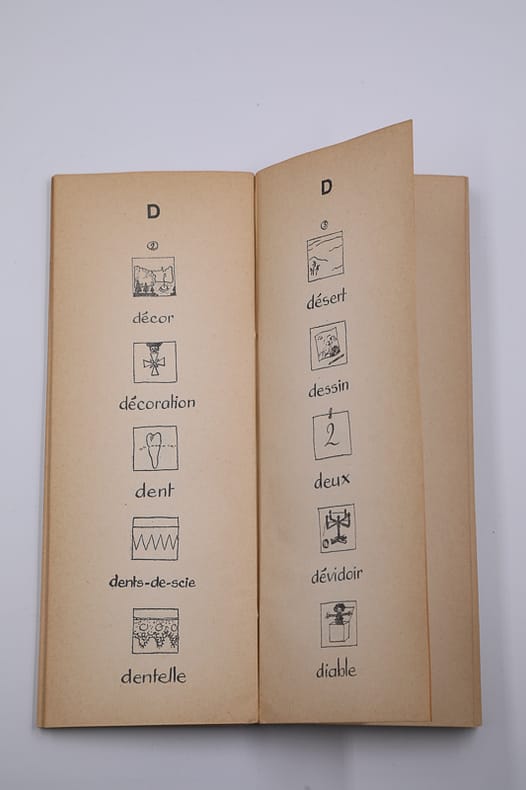 D
②
décor
décoration
dent
dents-de-scie
dentelle
D
③
désert
dessin
2
deux
dévidoir
diable